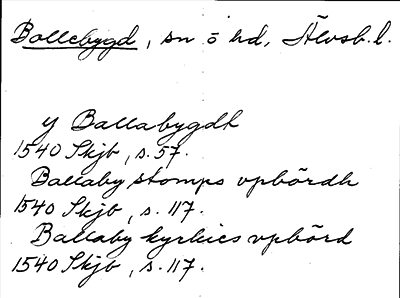 Bollebygd, sn o hd, Älvsb. l.
y Ballabygdt
1540 Skjb, s. 57.
Ballaby stomps vpbördh
1540 Skjb, s. 117.
Ballaby kyrkies vpbörd
1540 Skjb, s. 117.